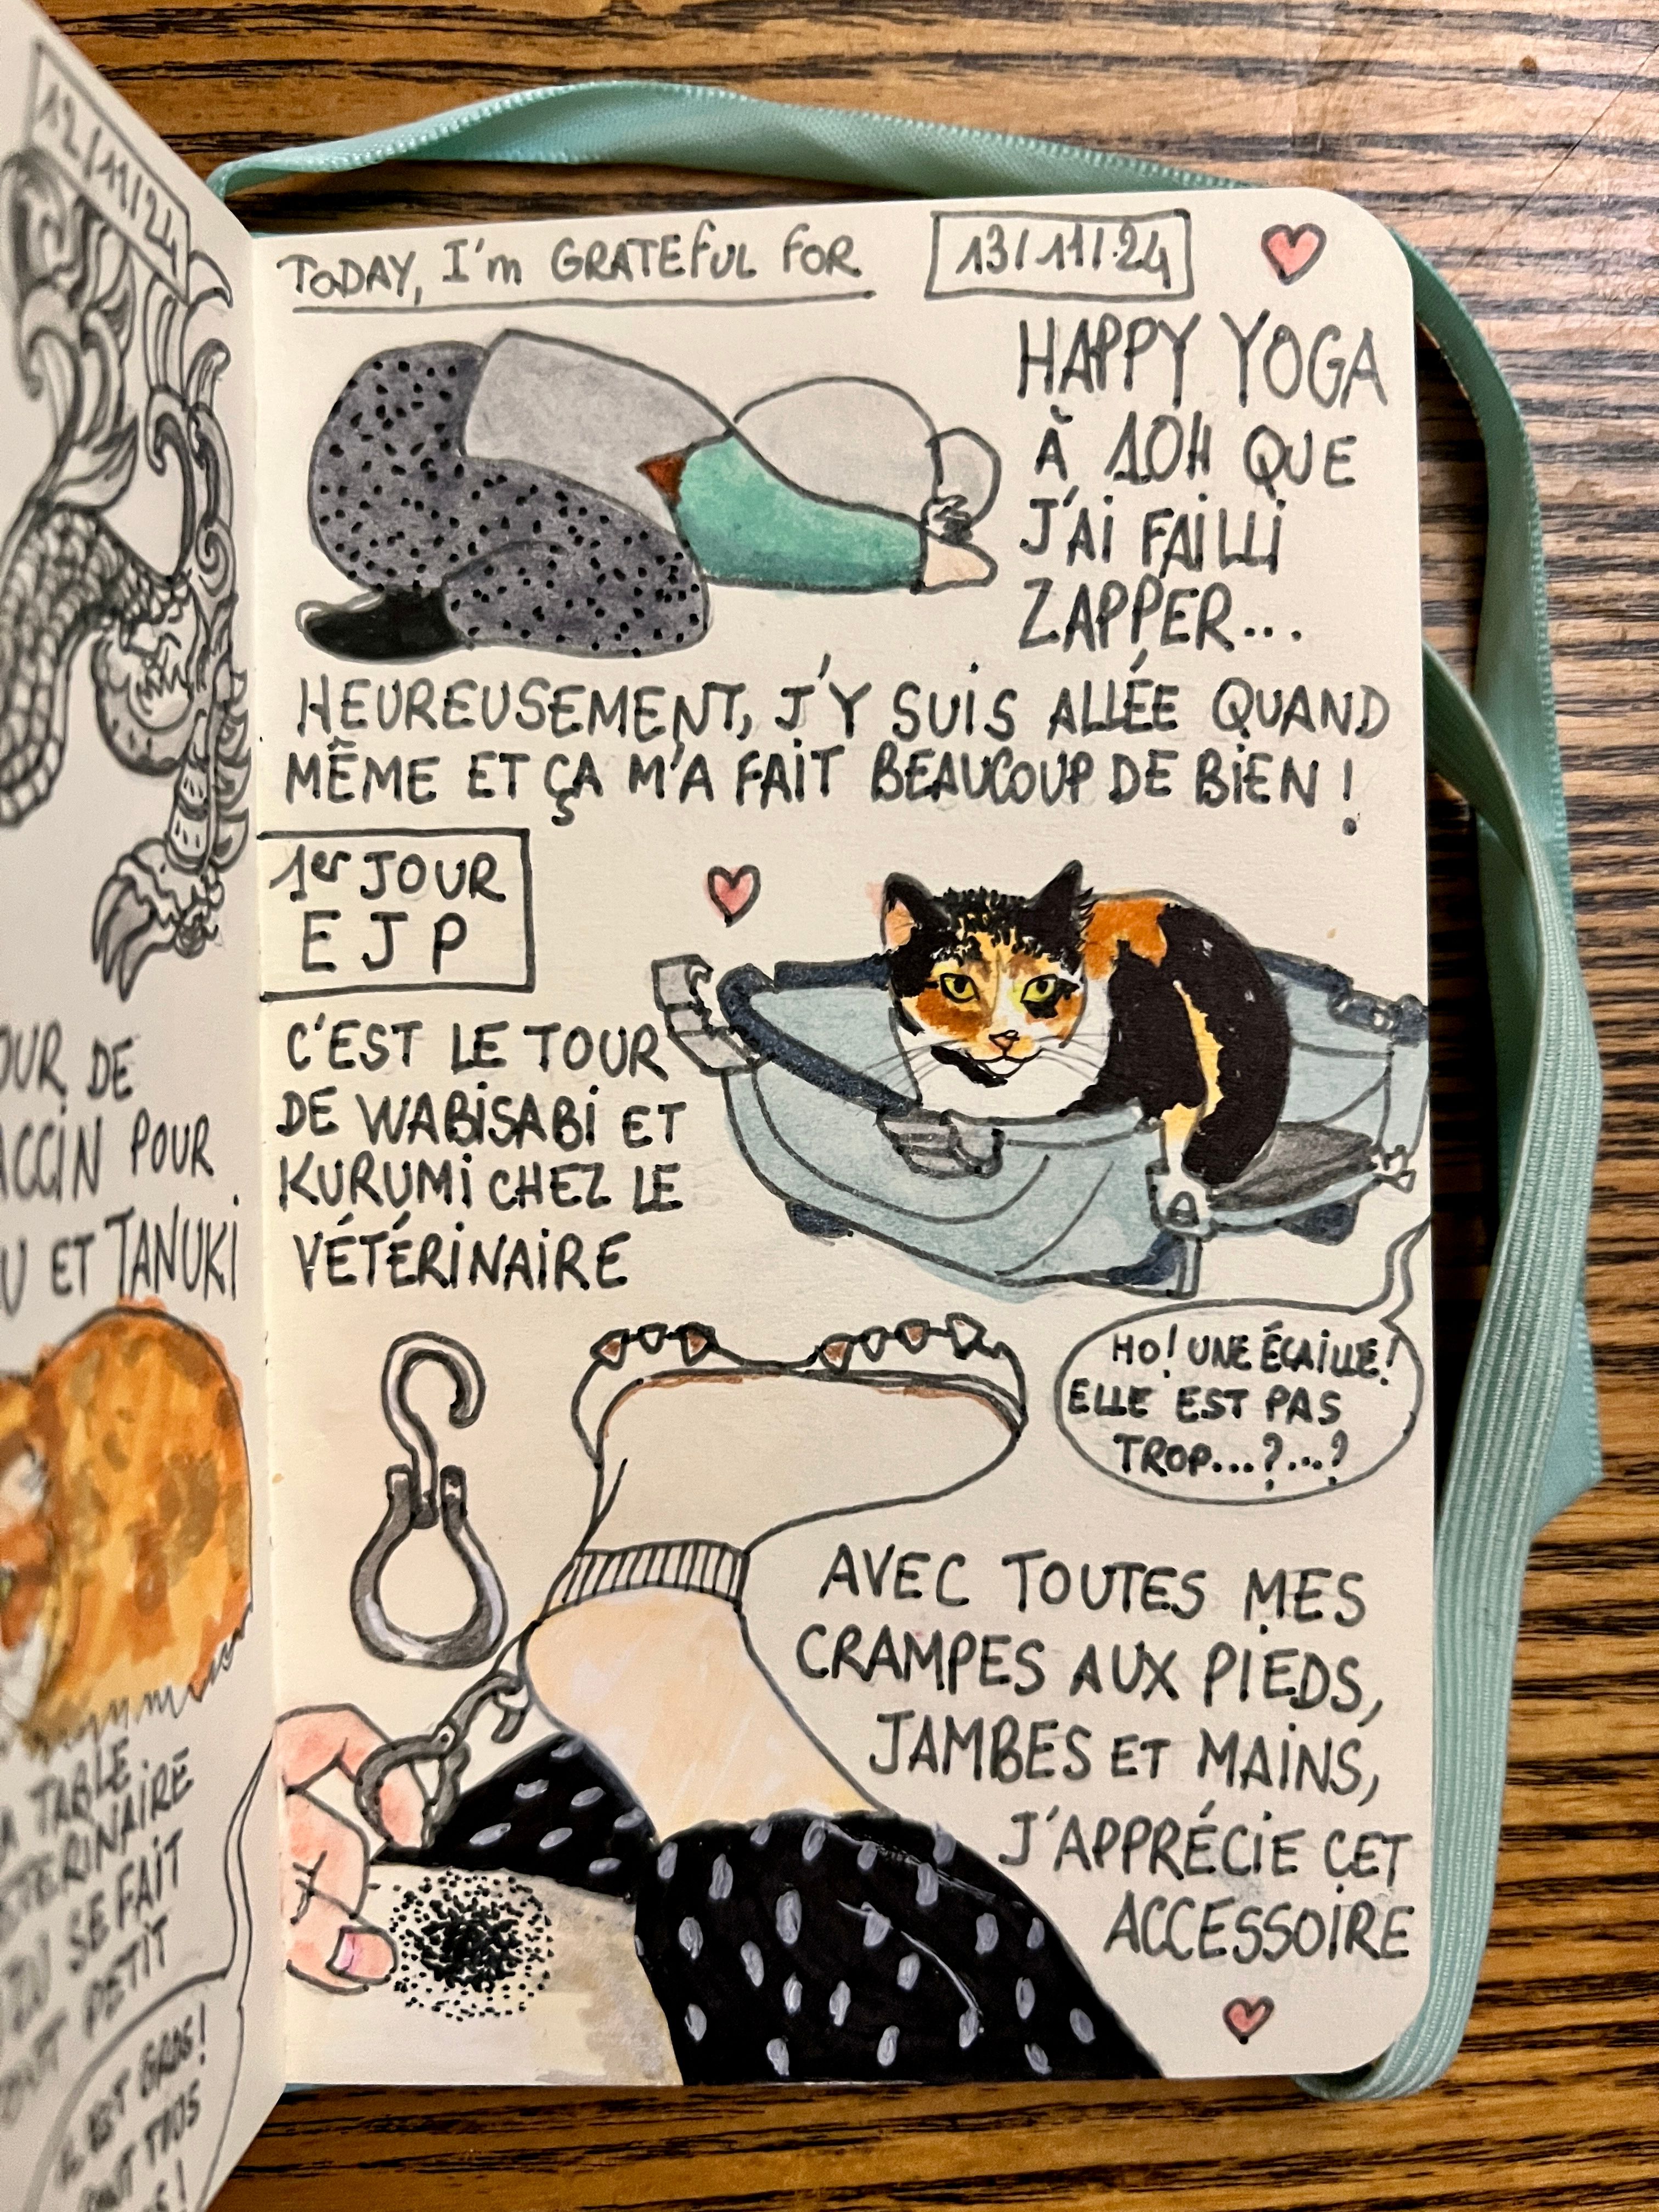 12/11/24
DE
POUR
ET TANUKI
TABLE
SE FAIT
PETIT
EST GROS!
TODAY, I'm GRATEFUL FOR
13/11/24
HAPPY YOGA
À 10H QUE
J'AI FAILLI
ZAPPER...
HEUREUSEMENT, J'Y SUIS ALLÉE QUAND
MÊME ET ÇA M'A FAIT BEAUCOUP DE BIEN !
1er JOUR
EJP
C'EST LE TOUR
DE WABISABI ET
KURUMI CHEZ LE
VÉTÉRINAIRE
HO! UNE ÉCAILLE!
ELLE EST PAS
TROP...?...?
AVEC TOUTES MES
CRAMPES AUX PIEDS,
JAMBES ET MAINS,
J'APPRÉCIE CET
ACCESSOIRE